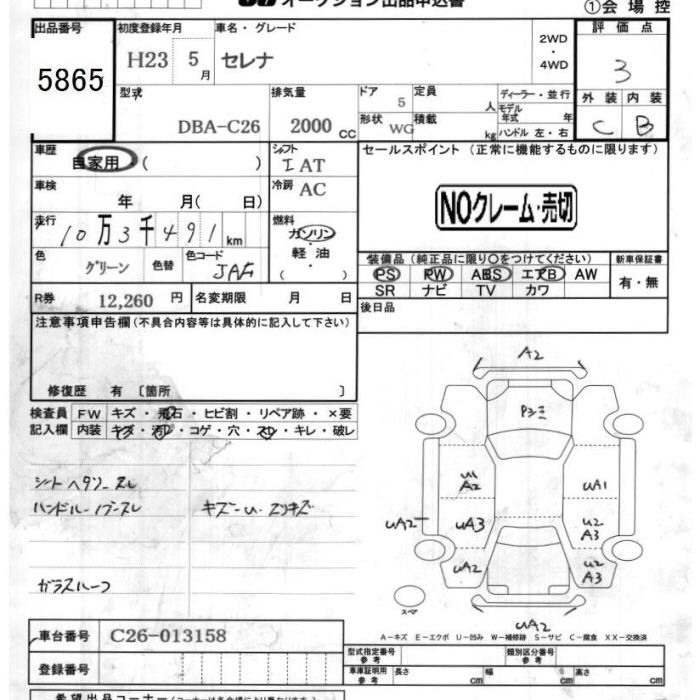 オークション出品申込書 ①会場控
出品番号 初度登録年月 車名・グレード 2WD・4WD 評価点
5865 H23 5月 セレナ 3
型式 排気量 ドア 定員 ディーラー・並行 外装 内装
DBA-C26 2000cc 5 人 モデル年式 年 C B
形状 積載 ハンドル 左・右
WG kg
車歴 自家用 ( ) シフト セールスポイント (正常に機能するものに限ります)
IAT
車検 年 月( 日) 冷房 AC NOクレーム・売切
走行 10万3千491km 燃料 ガソリン・軽油・( )
色 グリーン 色替 色カラーコード JAG
装備品 (純正品に限り○をつけてください) 新車保証書
PS PW ABS エアB AW 有・無
SR ナビ TV カワ
R券 12,260円 名変期限 月 日 後日品
注意事項申告欄 (不具合内容等は具体的に記入して下さい)
修復歴 有 〔箇所 〕
検査員 FW キズ・飛石・ヒビ割・リペア跡・×要
記入欄 内装 キズ・汚レ・コゲ・穴・スレ・キレ・破レ
シートヘタリ・スレ
ハンドル・ノブースレ キズ・U・スリキズ
ガラスルーフ
A2
P3ミ
U1 A2 UA1
UA2 UA3 U2 A3
UA2 U2 A3
スペア UA2
A−キズ E−エクボ U−凹み W−補修跡 S−サビ C−腐食 XX−交換済
車台番号 C26-013158 型式指定番号 参考 類別区分番号 参考
登録番号 車庫証明用 参考 長さ cm 幅 cm 高さ cm
希望出品コーナー